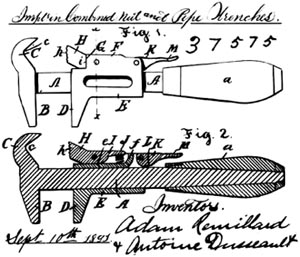 Impt in Combined Nut and Pipe Wrenches.
37575
Fig. 1.
C c H G F K M
h i
A A a
B D E
x
Fig. 2.
H e I d f L K M a
C c h
B D E A
Inventors.
Sept. 10th 1891
Adam Remillard
& Antoine Dusseault